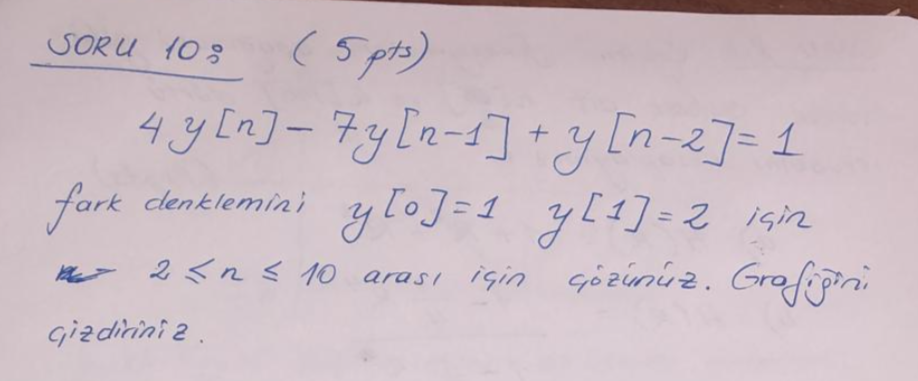 SORU 10: (5 pts)
4y[n] - 7y[n-1] + y[n-2] = 1
fark denklemini y[0]=1 y[1]=2 için
2 ≤ n ≤ 10 arası için çözünüz. Grafiğini
çizdiriniz.